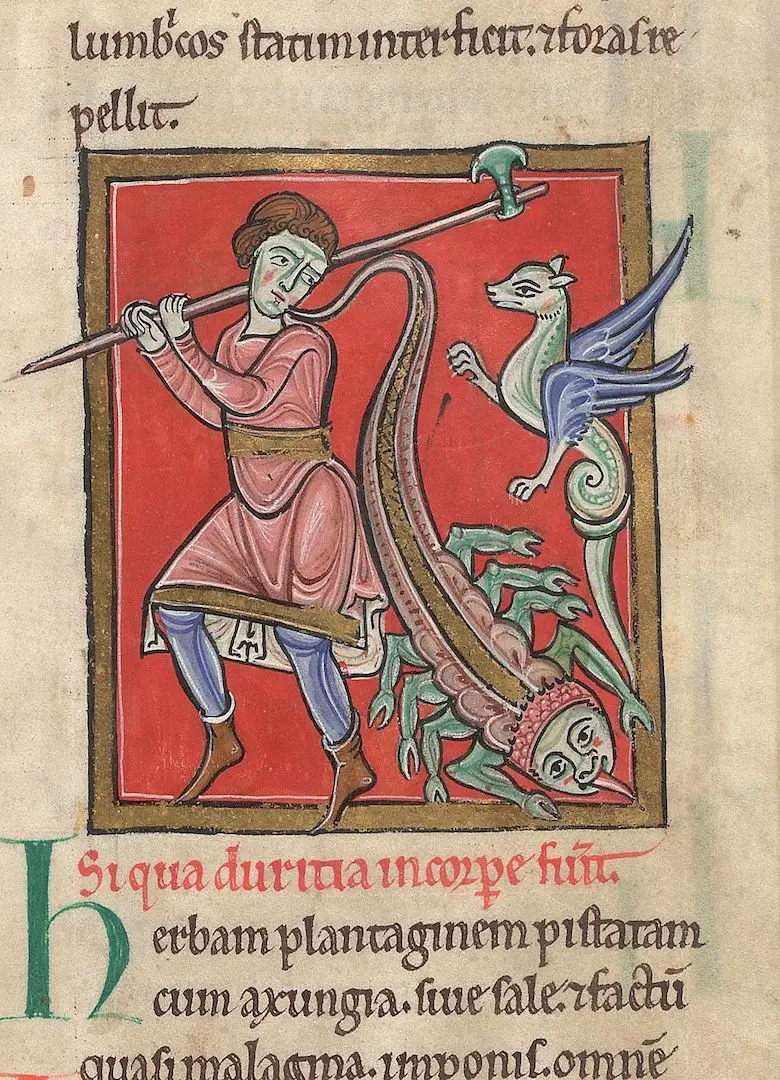 lumb'cos statim interficit. ⁊ foras re
pellit.
Si qua duritia in corpꝑe fuīt.
Herbam plantaginem pistatam
cum axungia. siue sale. ⁊ factū
quasi malagma. imponis. omnē